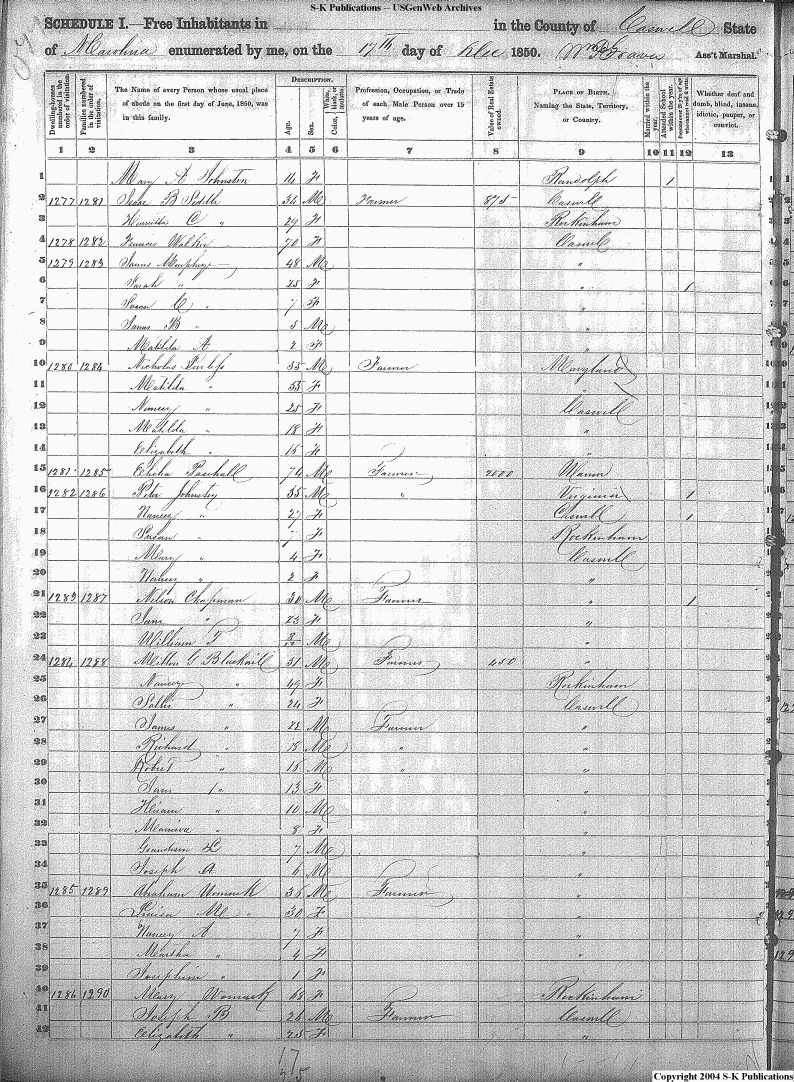 S-K Publications -- USGenWeb Archives
SCHEDULE I.—Free Inhabitants in in the County of Caswell State
of Carolina enumerated by me, on the 17th day of Dec 1850. Wm Graves Ass't Marshal.
Dwelling-houses numbered in the order of visitation.
Families numbered in the order of visitation.
The Name of every Person whose usual place of abode on the first day of June, 1850, was in this family.
DESCRIPTION.
Age.
Sex.
Color, White, black, or mulatto.
Profession, Occupation, or Trade of each Male Person over 15 years of age.
Value of Real Estate owned.
PLACE OF BIRTH. Naming the State, Territory, or Country.
Married within the year.
Attended School within the year.
Persons over 20 y'rs of age who cannot read & write.
Whether deaf and dumb, blind, insane, idiotic, pauper, or convict.
1 2 3 4 5 6 7 8 9 10 11 12 13
1 Mary A Johnston 14 F Randolph 1
2 1277 1281 Isaac B Siddle 34 M Farmer 875 Caswell
3 Henrietta C " 29 F Rockinham
4 1278 1282 Frances Walker 70 F Caswell
5 1279 1283 James Murphey 48 M "
6 Sarah " 25 F " 1
7 Susan C " 7 F "
8 James B " 5 M "
9 Matilda A 2 F "
10 1280 1284 Nicholas 55 M Farmer Maryland
11 Matilda " 55 F "
12 Nancy " 25 F Caswell
13 Matilda " 18 F "
14 Elizabeth " 15 F "
15 1281 1285 Elisha Paschall 74 M Farmer 2000 Warren
16 1282 1286 Peter Johnston 35 M " Virginia 1
17 Nancy " 27 F Caswell 1
18 Susan " 7 F Rockinham
19 Mary " 4 F Caswell
20 Nancy " 2 F "
21 1283 1287 Nelson Chapman 30 M Farmer " 1
22 Jane " 23 F "
23 William F 8/12 M "
24 1284 1288 Milton G Blackwell 51 M Farmer 450 "
25 Nancy " 49 F Rockinham
26 Sallie " 24 F Caswell
27 James " 22 M Farmer "
28 Richard " 18 M " "
29 Robert " 16 M " "
30 Jane " 13 F "
31 Hiram " 10 M "
32 " 8 F "
33 L 7 M "
34 Joseph A 6 M "
35 1285 1289 Abraham Womack 36 M Farmer "
36 Louisa M " 30 F "
37 Nancy A 7 F "
38 Martha " 4 F "
39 Josephine " 1 F "
40 1286 1290 Mary Womack 65 F Rockinham
41 Joseph B 26 M Farmer Caswell
42 Elizabeth " 25 F "
17
Copyright 2004 S-K Publications